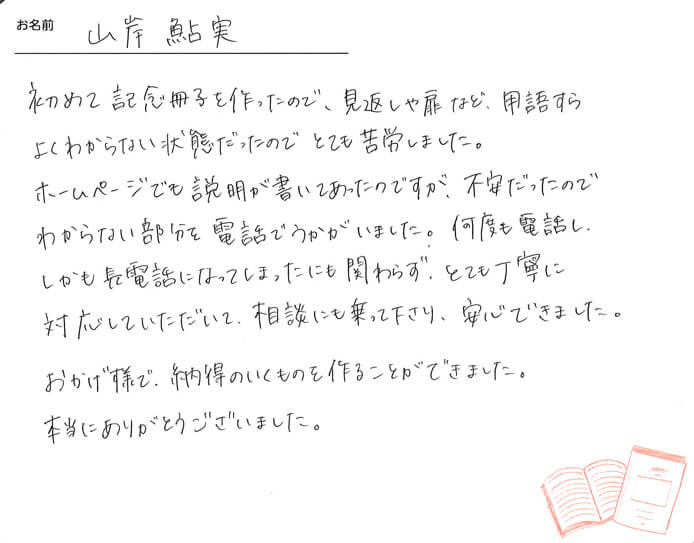 お名前 山岸 鮎実
初めて記念冊子を作ったので、見返しや扉など、用語すら
よくわからない状態だったのでとても苦労しました。
ホームページでも説明が書いてあったのですが、不安だったので
わからない部分を電話でうかがいました。何度も電話し、
しかも長電話になってしまったにも関わらず、とても丁寧に
対応していただいて、相談にも乗って下さり、安心できました。
おかげ様で、納得のいくものを作ることができました。
本当にありがとうございました。